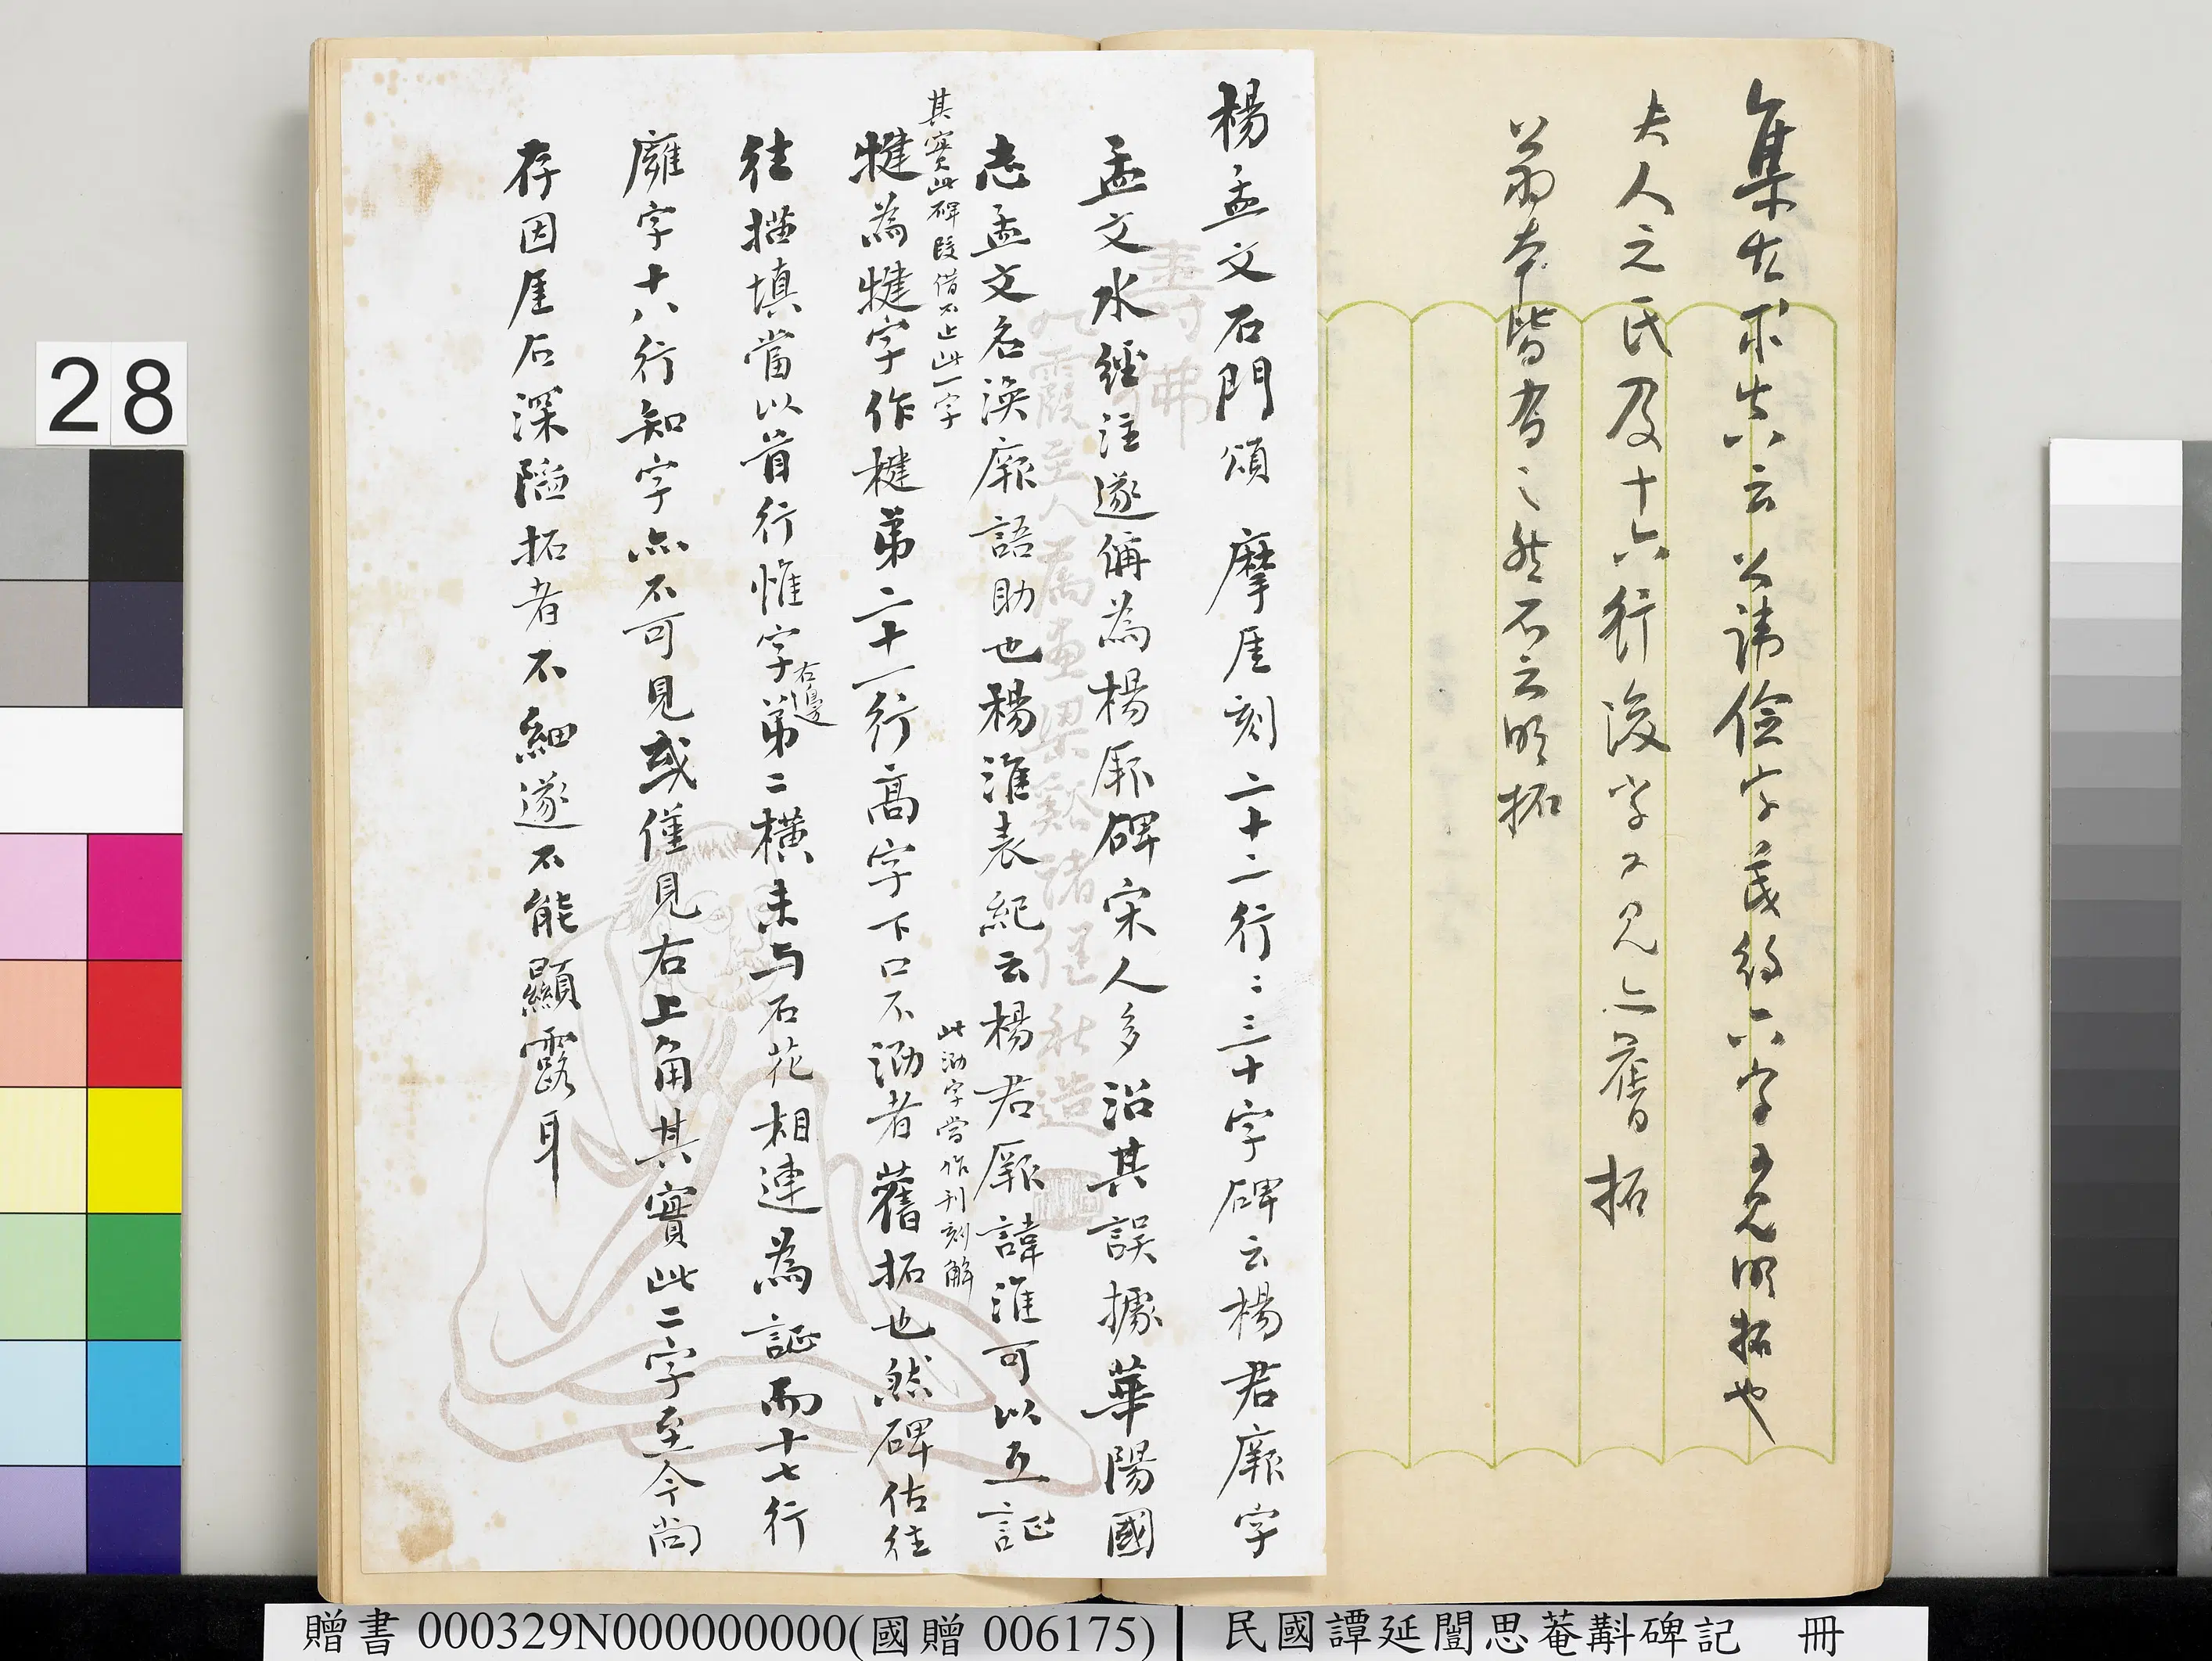 集古求真云公諱儉字茂約六字可見明拓也
夫人元氏及十六行後字可見亦舊拓
翁本皆有之然不云明拓
楊孟文石門頌 摩厓刻二十二行ミ三十字碑云楊君厥字
孟文水經注遂偁為楊厥碑宋人多沿其誤據華陽國
志孟文名渙厥語助也楊淮表紀云楊君厥諱淮可以互証
其實此碑叚借不止此一字
犍為犍字作楗第二十一行高字下口不泐者舊拓也然碑估往
此泐字當作刊刻解
往描填當以首行惟字右邊第二橫未与石花相連為証而十七行
廱字十八行知字亦不可見或僅見右上角其實此二字至今尚
存因厓石深隘拓者不細遂不能顯露耳
壽佛
九霞至人為畫梁谿諸健秋造
28
贈書 000329N000000000(國贈 006175)
民國譚延闓思菴斠碑記 冊